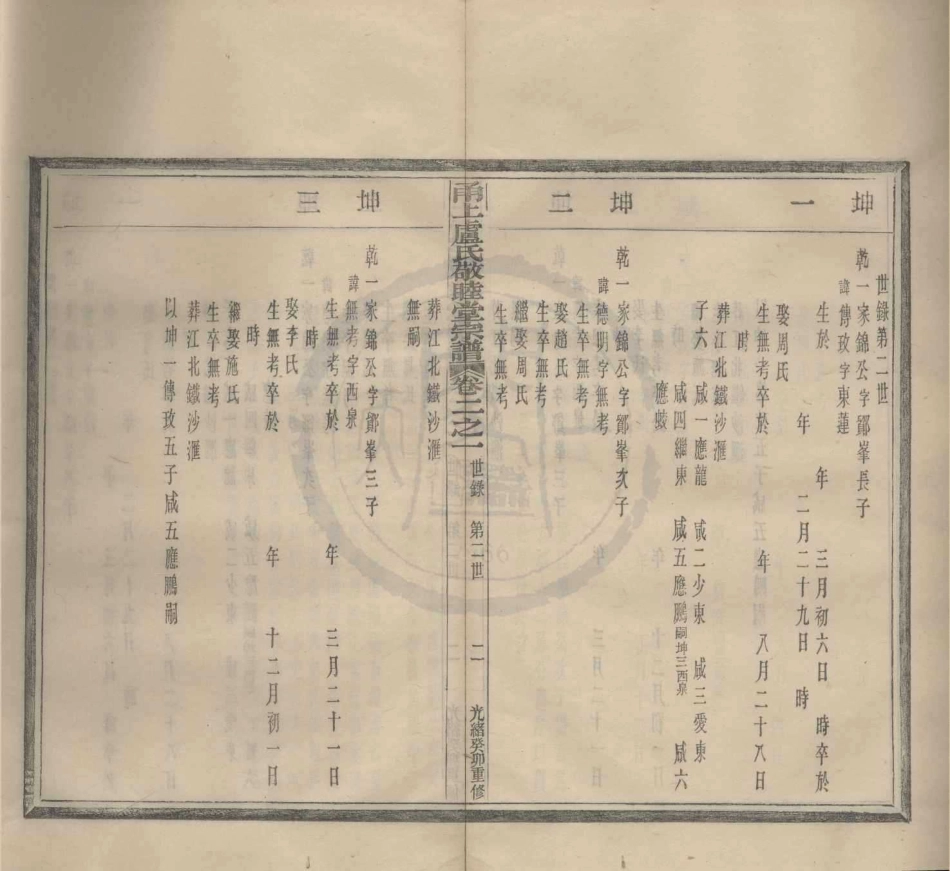 坤一
世錄第二世
乾一家錦公字鄮峯長子
諱傳玫字東蓮
生於　年　三月初六日　時卒於
年　二月二十九日　時
娶周氏
生無考卒於　年　八月二十八日
時
葬江北鐵沙滙
子六　咸一應龍　咸二少東　咸三愛東　咸六
咸四繼東　咸五應鵬嗣坤三西泉
應蛟
坤二
乾一家錦公字鄮峯次子
諱德明字無考
生卒無考
娶趙氏
生卒無考
繼娶周氏
生卒無考
甬上盧氏敬睦堂宗譜　卷二之一　世錄　第二世　二　光緒癸卯重修
葬江北鐵沙滙
無嗣
坤三
乾一家錦公字鄮峯三子
諱無考字西泉
生無考卒於　年　三月二十一日
時
娶李氏
生無考卒於　年　十二月初一日
時
繼娶施氏
生卒無考
葬江北鐵沙滙
以坤一傳玫五子咸五應鵬嗣